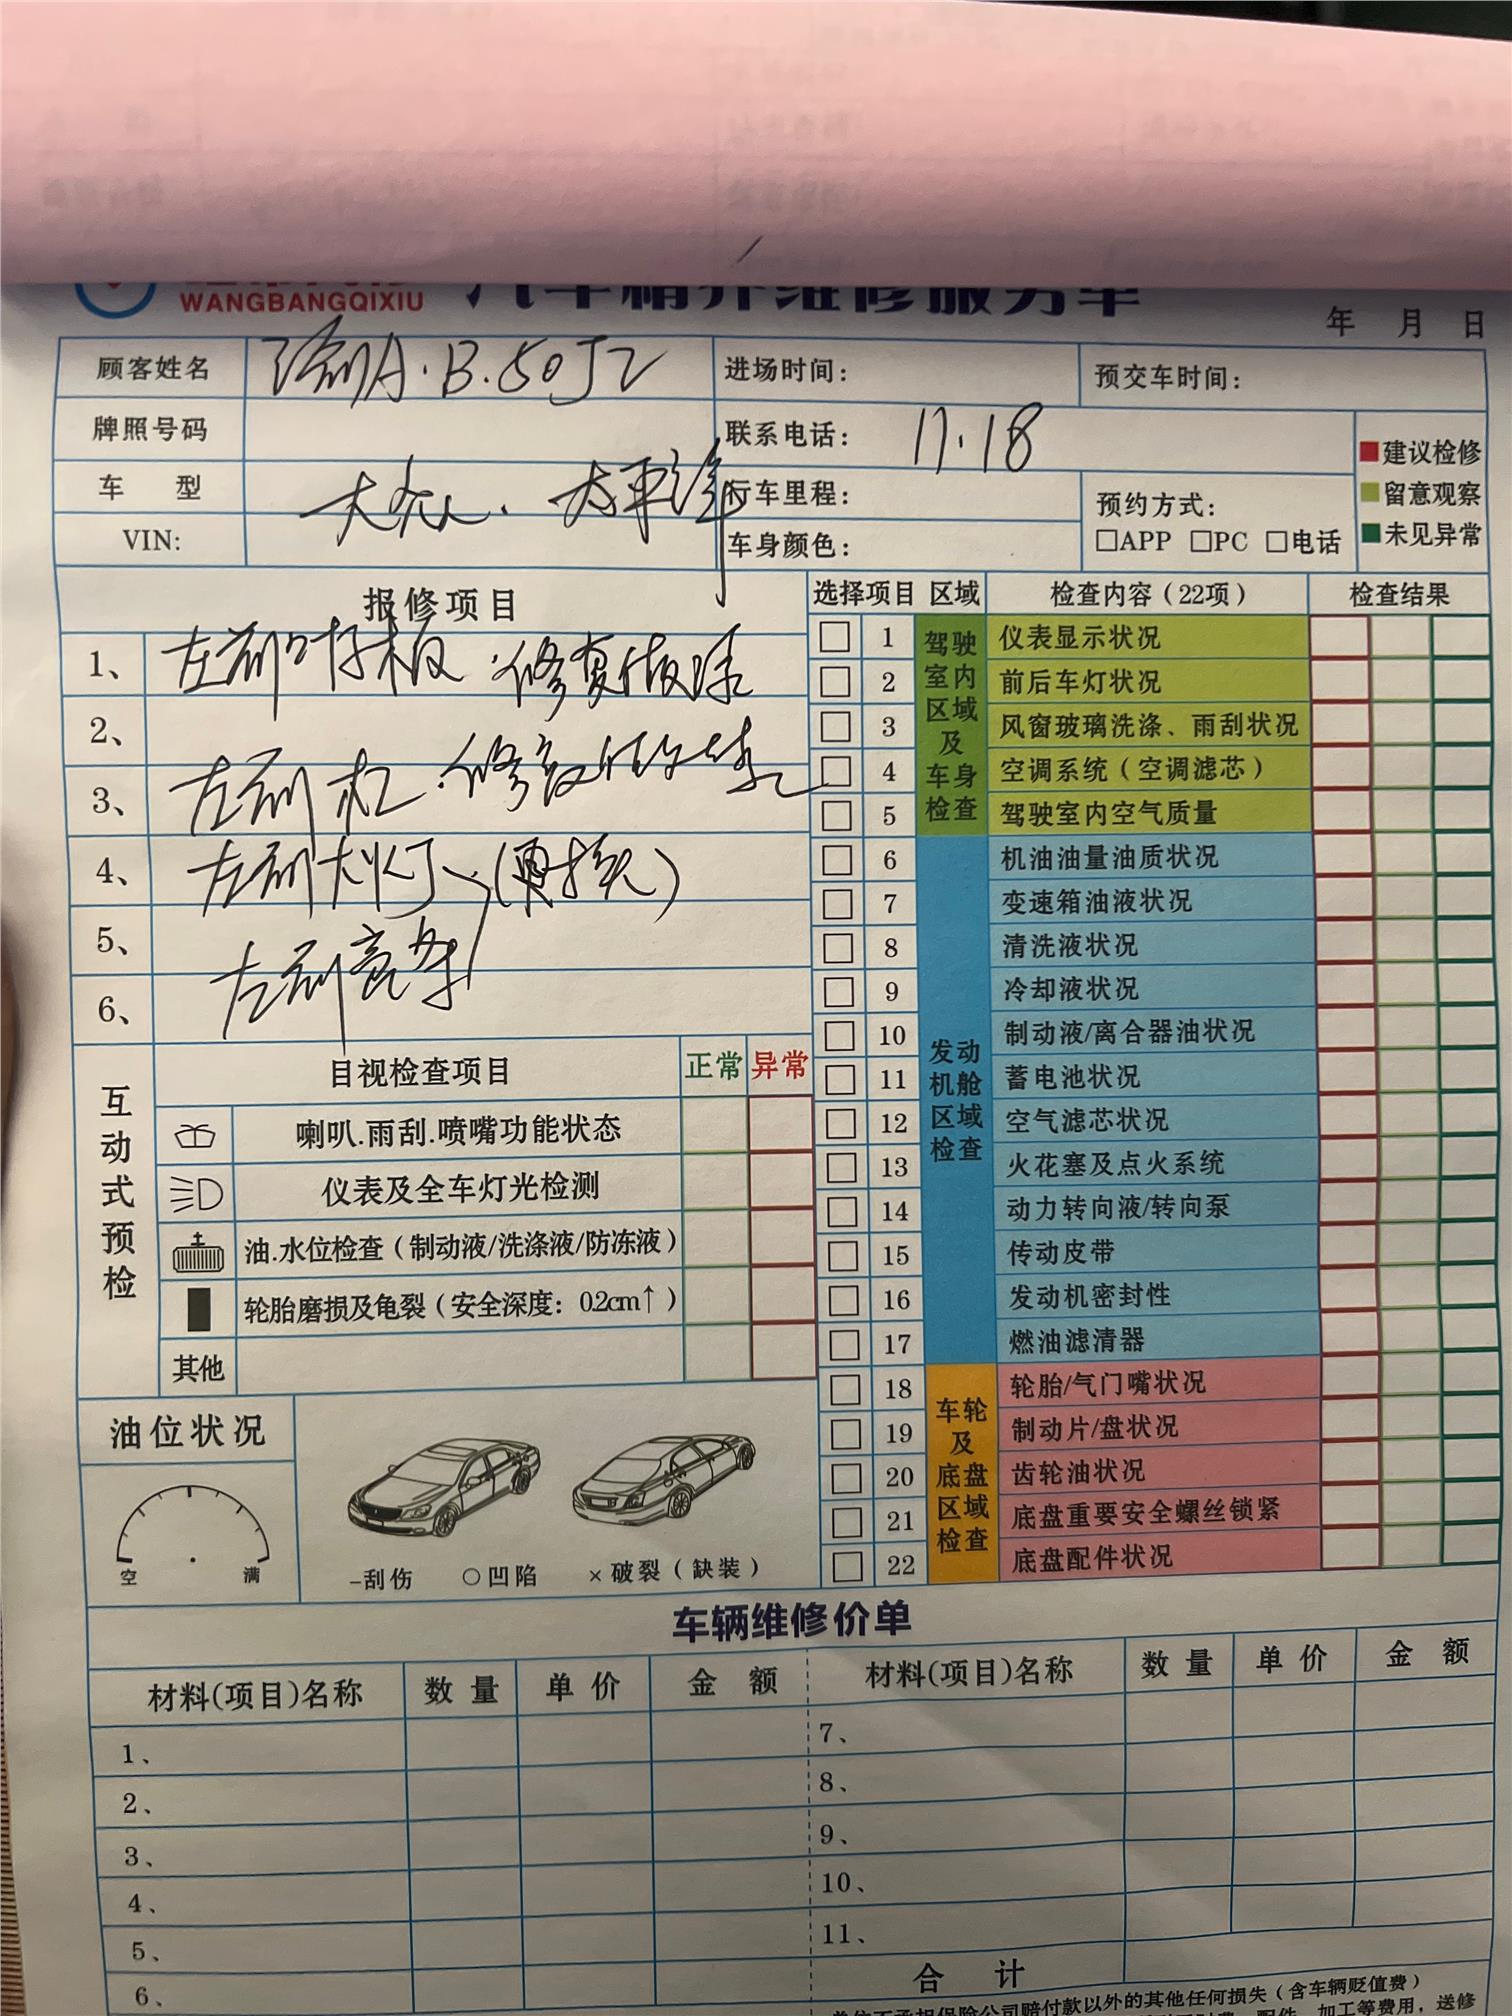 WANGBANGQIXIU 汽车精养维修服务单
年 月 日
顾客姓名 渝A·B·50J2 进场时间： 预交车时间：
牌照号码 联系电话： 11.18
车 型 大众. 太平洋 行车里程： 预约方式：
□APP □PC □电话
VIN: 车身颜色：
建议检修
留意观察
未见异常
报修项目
1、 左前叶子板 修复做漆
2、
3、 左前杠 修复做漆
4、 左前大灯 (更换)
5、
6、 左前亮条
选择项目 区域 检查内容（22项） 检查结果
驾驶室内区域及车身检查
1 仪表显示状况
2 前后车灯状况
3 风窗玻璃洗涤、雨刮状况
4 空调系统（空调滤芯）
5 驾驶室内空气质量
发动机舱区域检查
6 机油油量油质状况
7 变速箱油液状况
8 清洗液状况
9 冷却液状况
10 制动液/离合器油状况
11 蓄电池状况
12 空气滤芯状况
13 火花塞及点火系统
14 动力转向液/转向泵
15 传动皮带
16 发动机密封性
17 燃油滤清器
车轮及底盘区域检查
18 轮胎/气门嘴状况
19 制动片/盘状况
20 齿轮油状况
21 底盘重要安全螺丝锁紧
22 底盘配件状况
互动式预检
目视检查项目 正常 异常
喇叭.雨刮.喷嘴功能状态
仪表及全车灯光检测
油.水位检查（制动液/洗涤液/防冻液）
轮胎磨损及龟裂（安全深度：0.2cm↑）
其他
油位状况
空 满
-刮伤 ○凹陷 ×破裂（缺装）
车辆维修价单
材料(项目)名称 数 量 单 价 金 额 材料(项目)名称 数 量 单 价 金 额
1、 7、
2、 8、
3、 9、
4、 10、
5、 11、
6、 合 计
单位不承担保险公司赔付款以外的其他任何损失（含车辆贬值费）
配件、加工等费用，送修